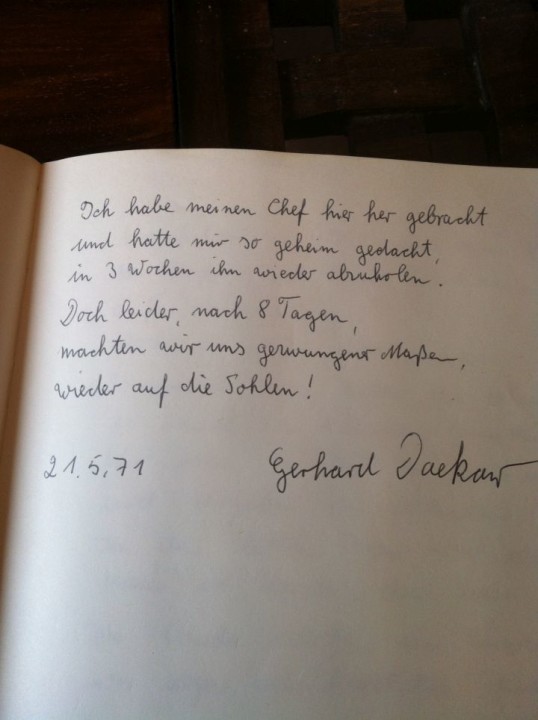 Ich habe meinen Chef hier her gebracht
und hatte mir so geheim gedacht,
in 3 Wochen ihn wieder abzuholen.
Doch leider, nach 8 Tagen,
machten wir uns gezwungener Maßen,
wieder auf die Sohlen!
21.5.71 Gerhard Daekow